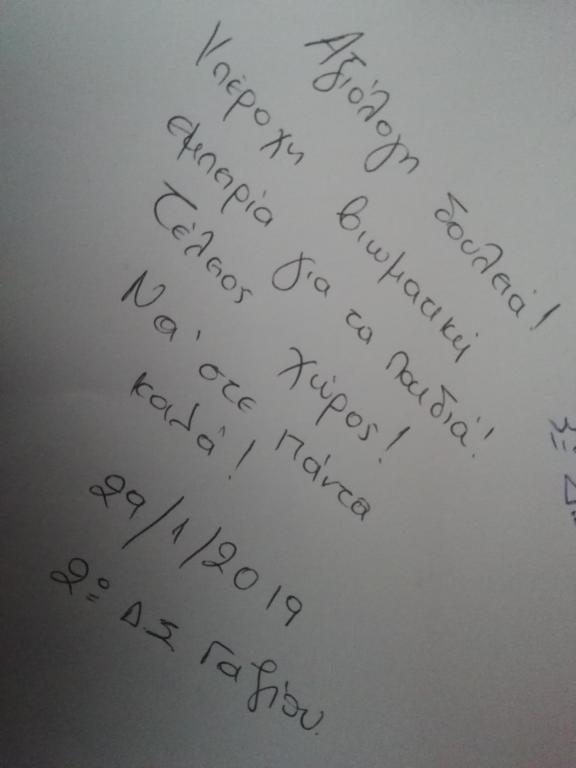 Αξιόλογη δουλειά!
Υπέροχη βιωματική
εμπειρία για τα παιδιά!
Τέλειος χώρος!
Να' στε πάντα
καλά!
29/1/2019
2ο ΔΣ Γαζίου